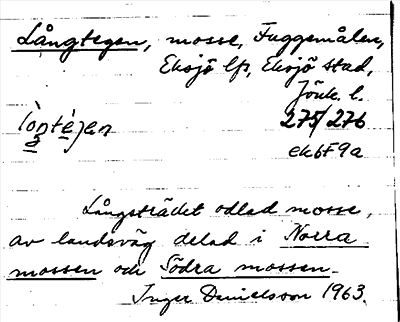 Långtegen, mosse, Fuggemålen,
Eksjö lfs, Eksjö stad,
Jönk. l.
lòntéjen 275/276
ek6F9a
Långsträckt odlad mosse,
av landsväg delad i Norra
mossen och Södra mossen.
Inger Danielsson 1963.